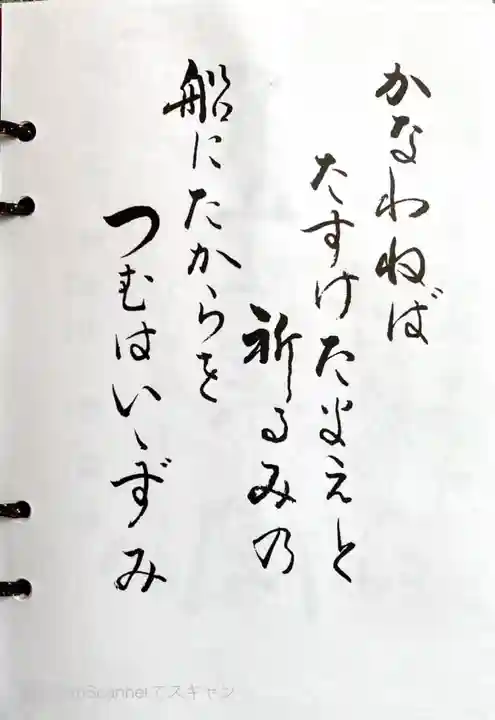 かなわねば
たすけたまえと
祈るみ乃
船にたからを
つむはいゝずみ
CamScannerでスキャン